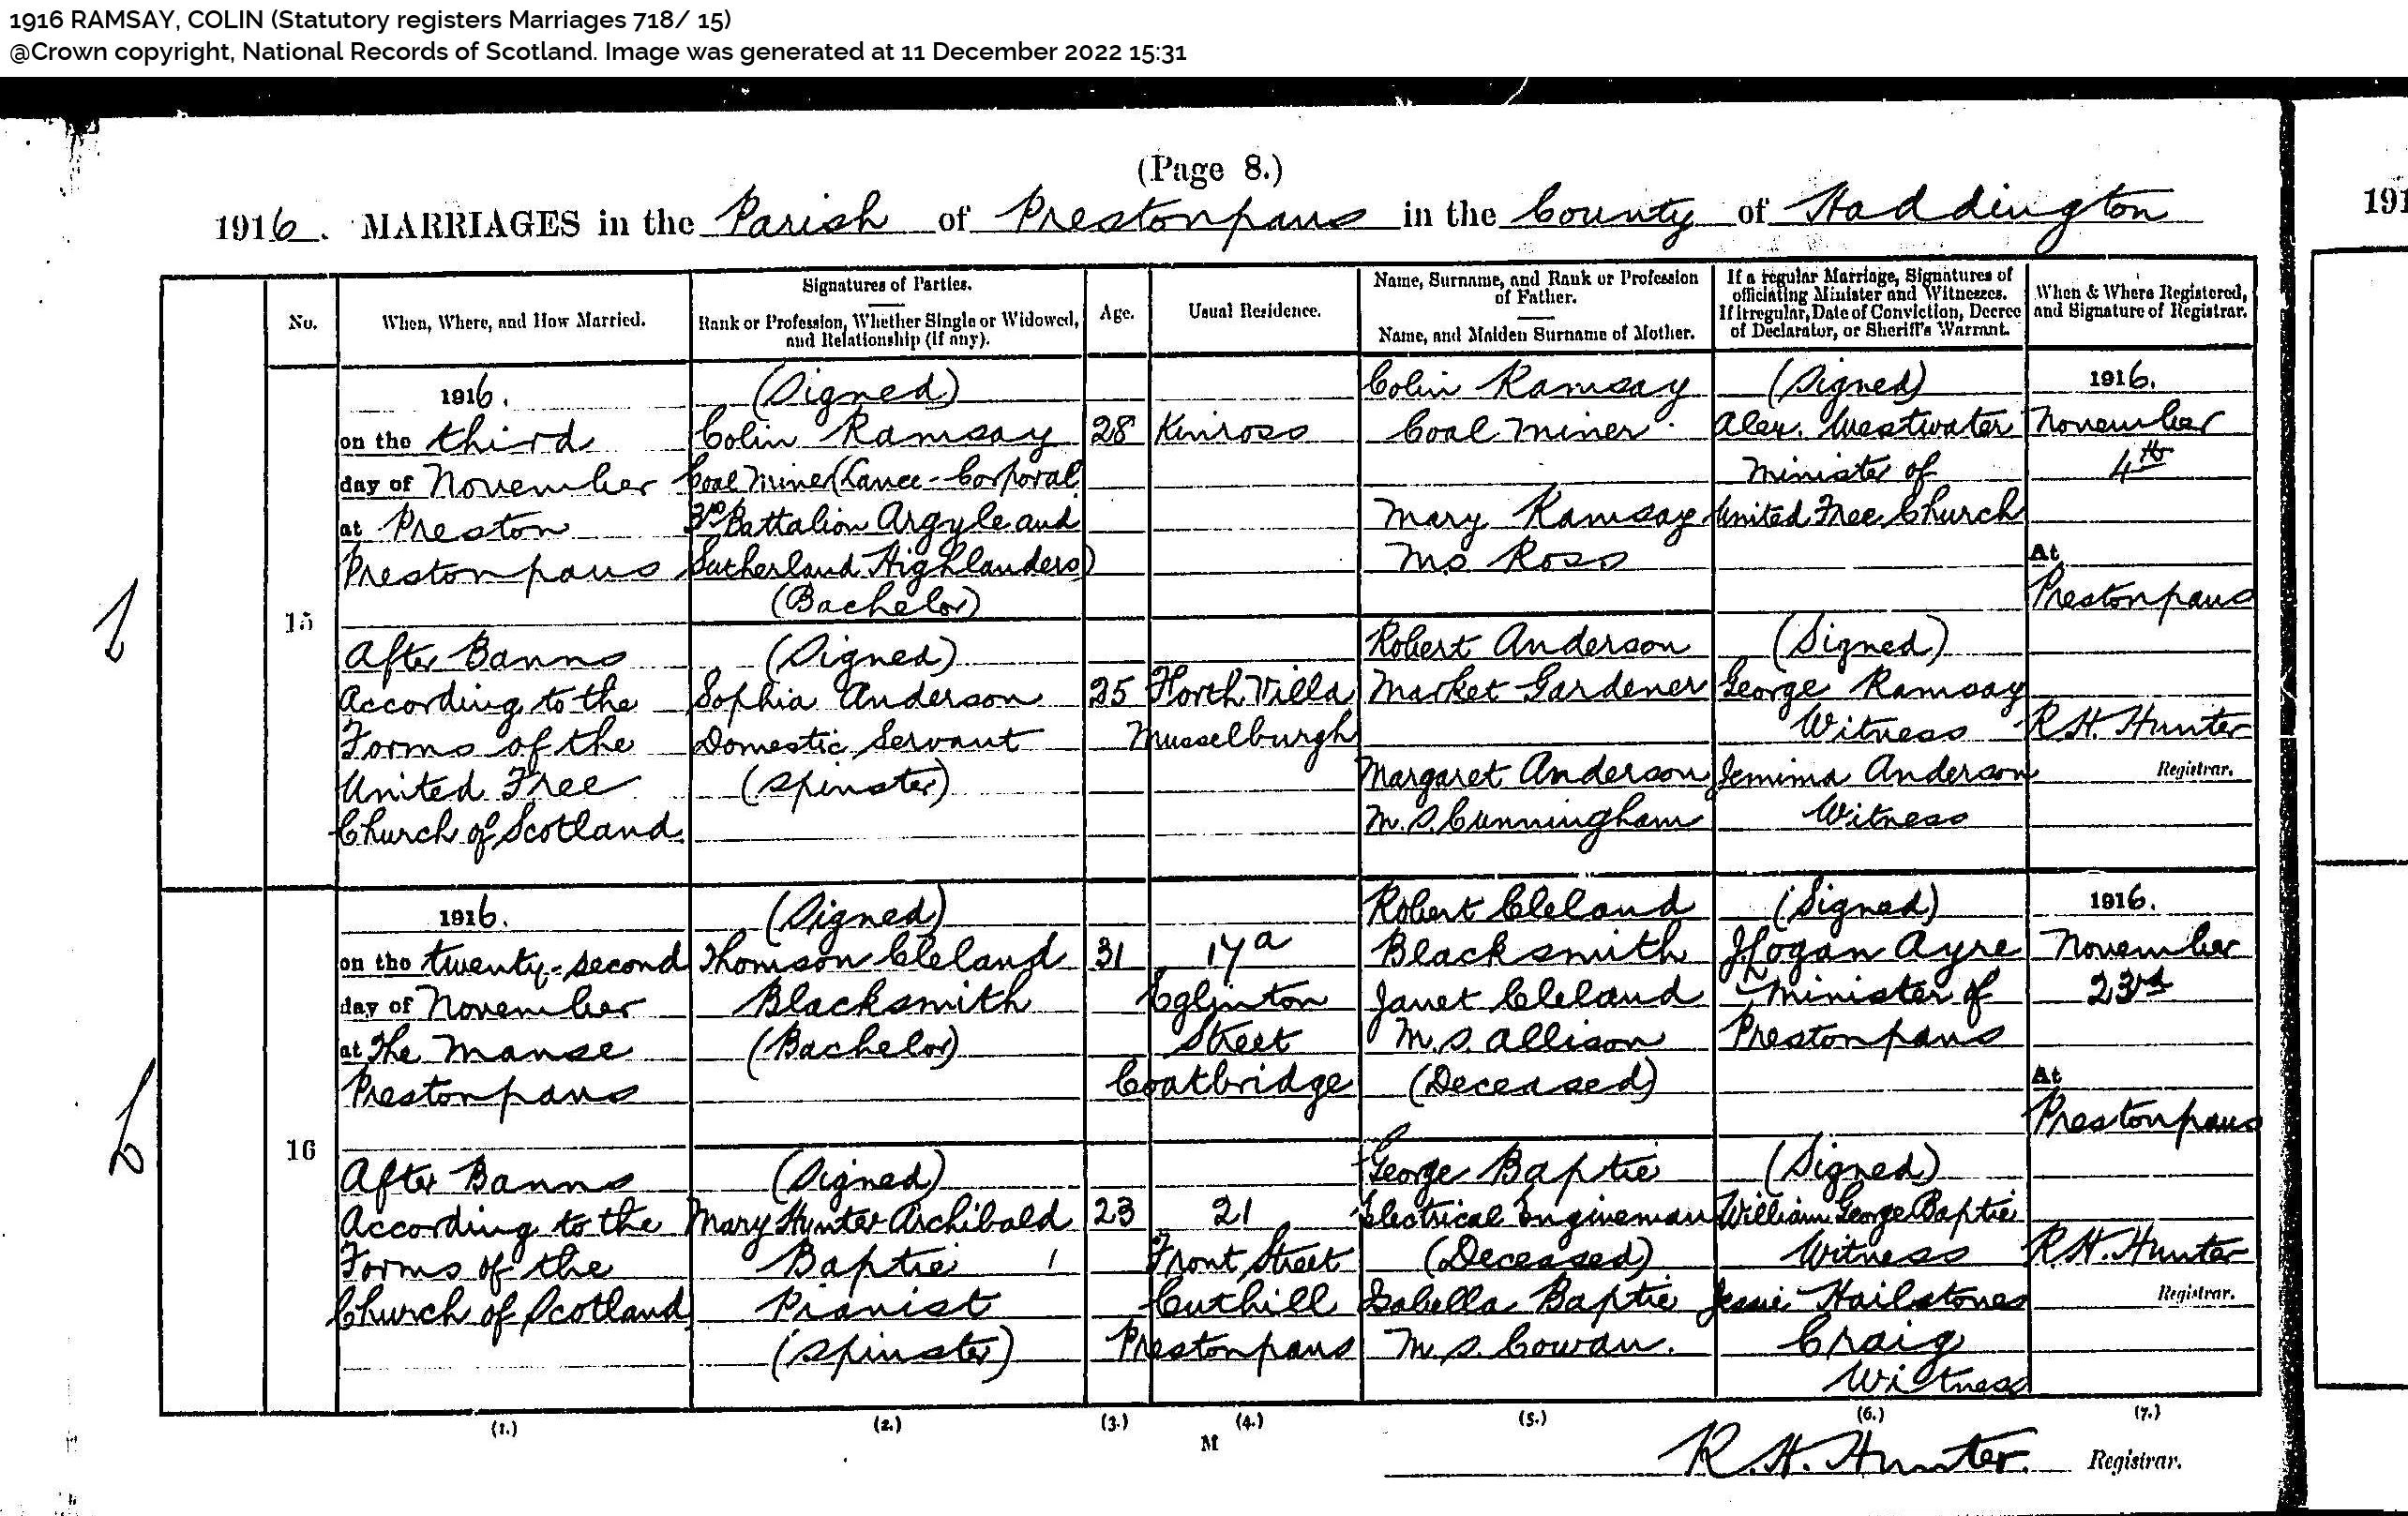 1916 RAMSAY, COLIN (Statutory registers Marriages 718/ 15)
@Crown copyright, National Records of Scotland. Image was generated at 11 December 2022 15:31
(Page 8.)
1916. MARRIAGES in the Parish of Prestonpans in the County of Haddington
191
No.
When, Where, and How Married.
Signatures of Parties.
Rank or Profession, Whether Single or Widowed,
and Relationship (if any).
Age.
Usual Residence.
Name, Surname, and Rank or Profession
of Father.
Name, and Maiden Surname of Mother.
If a regular Marriage, Signatures of
officiating Minister and Witnesses.
If irregular, Date of Conviction, Decree
of Declarator, or Sheriff's Warrant.
When & Where Registered,
and Signature of Registrar.
15
1916.
on the third
day of November
at Preston
Prestonpans
After Banns
According to the
Forms of the
United Free
Church of Scotland
(Signed)
Colin Ramsay
Coal Miner (Lance-Corporal
3rd Battalion Argyle and
Sutherland Highlanders)
(Bachelor)
(Signed)
Sophia Anderson
Domestic Servant
(Spinster)
28
25
Kinross
Forth Villa
Musselburgh
Colin Ramsay
Coal Miner
Mary Ramsay
M.S. Ross
Robert Anderson
Market Gardener
Margaret Anderson
M.S. Cunningham
(Signed)
Alex. Westwater
Minister of
United Free Church
(Signed)
George Ramsay
Witness
Jemima Anderson
Witness
1916.
November
4th
At
Prestonpans
R.H. Hunter
Registrar.
16
1916.
on the twenty-second
day of November
at The Manse
Prestonpans
After Banns
According to the
Forms of the
Church of Scotland
(Signed)
Thomson Cleland
Blacksmith
(Bachelor)
(Signed)
Mary Hunter Archibald
Baptie
Pianist
(Spinster)
31
23
17a
Eglinton
Street
Coatbridge
21
Front Street
Cuthill
Prestonpans
Robert Cleland
Blacksmith
Janet Cleland
M.S. Allison
(Deceased)
George Baptie
Electrical Engineman
(Deceased)
Isabella Baptie
M.S. Cowan.
(Signed)
J. Logan Ayre
Minister of
Prestonpans
(Signed)
William George Baptie
Witness
Jessie Hailstones
Craig
Witness
1916.
November
23rd
At
Prestonpans
R.H. Hunter
Registrar.
(1.) (2.) (3.) (4.) (5.) (6.) (7.)
M
R.H. Hunter. Registrar.